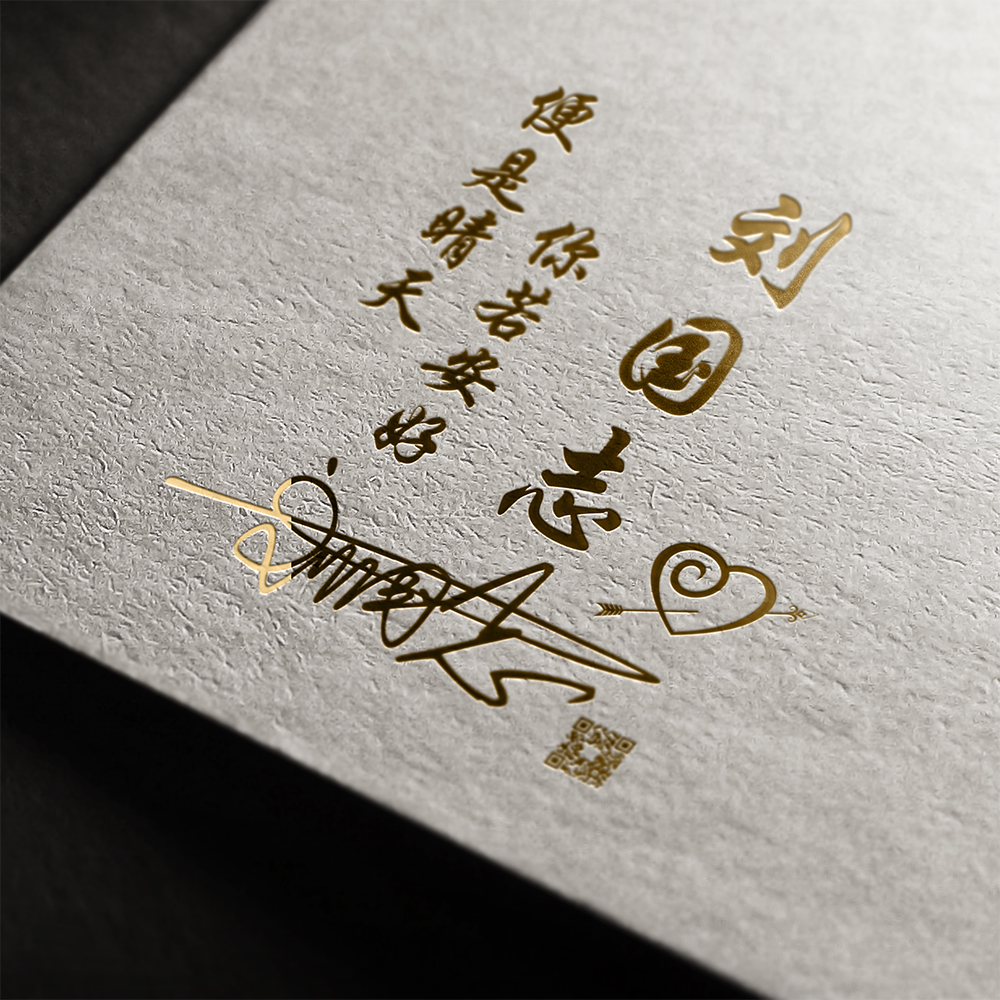 刘国志
你若安好
便是晴天